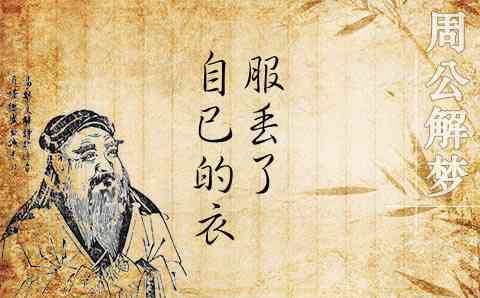 周公解梦
自已的衣
服丢了